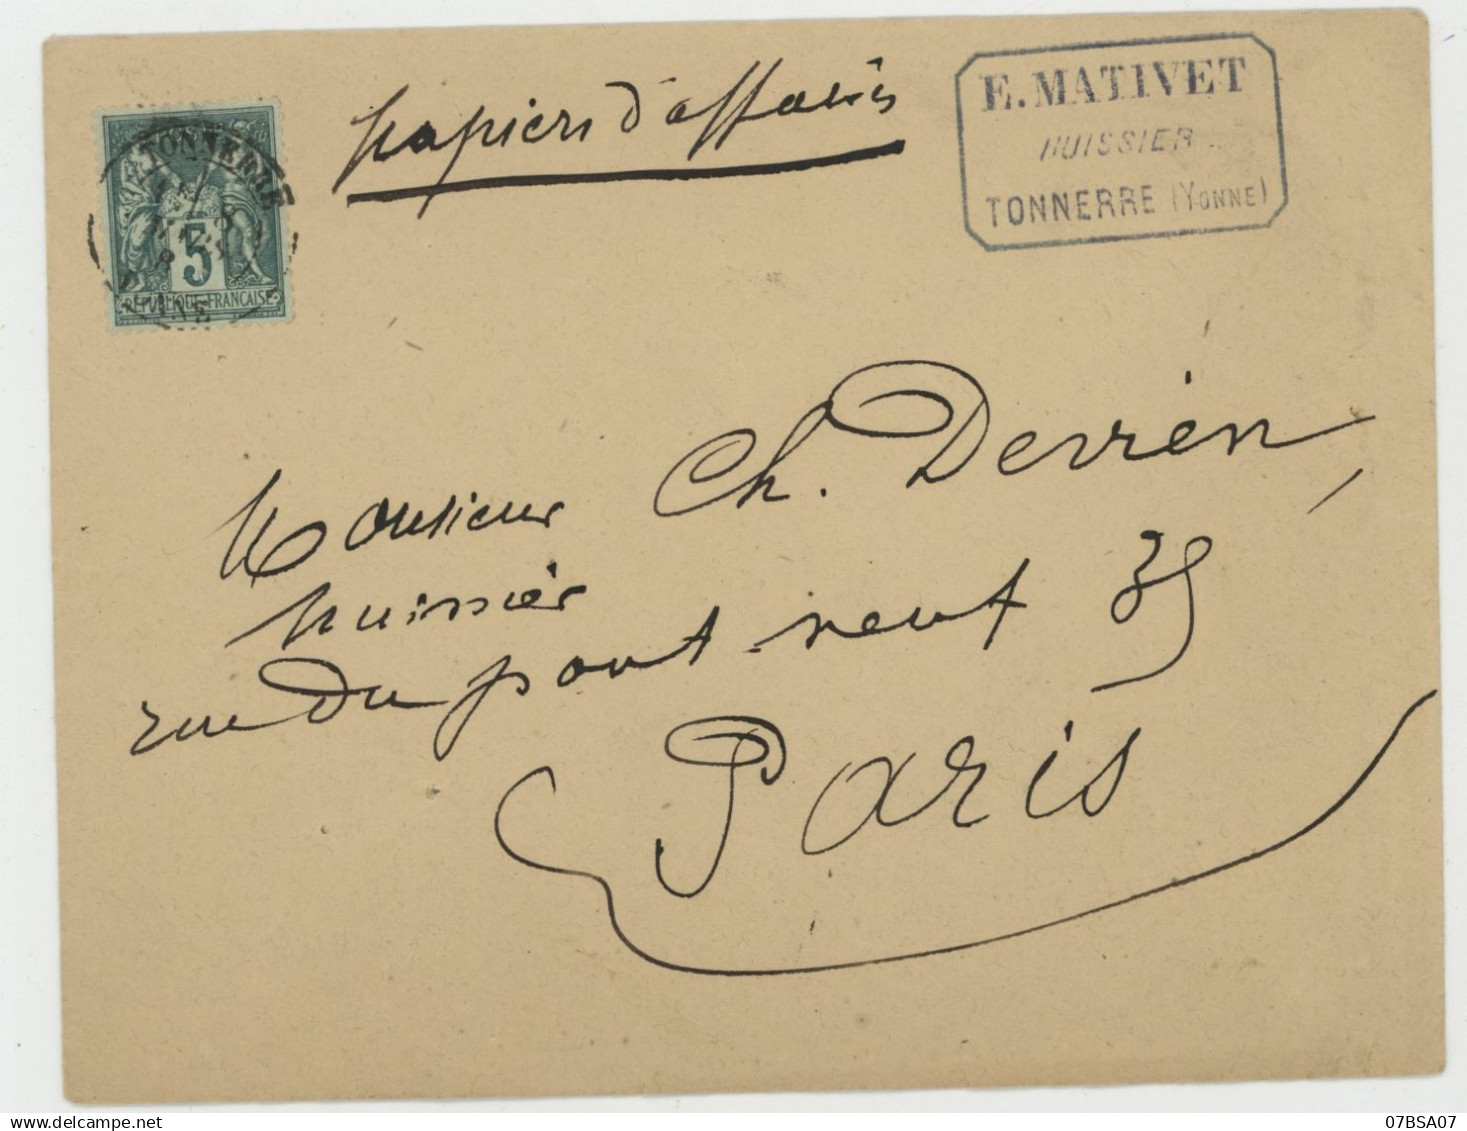 papiers d'affaires
E. MATIVET
HUISSIER
TONNERRE (YONNE)
TONNERRE
5
RÉPUBLIQUE FRANÇAISE
Monsieur Ch. Derrien
huissier
rue du pont neuf 35
Paris
07BSA07